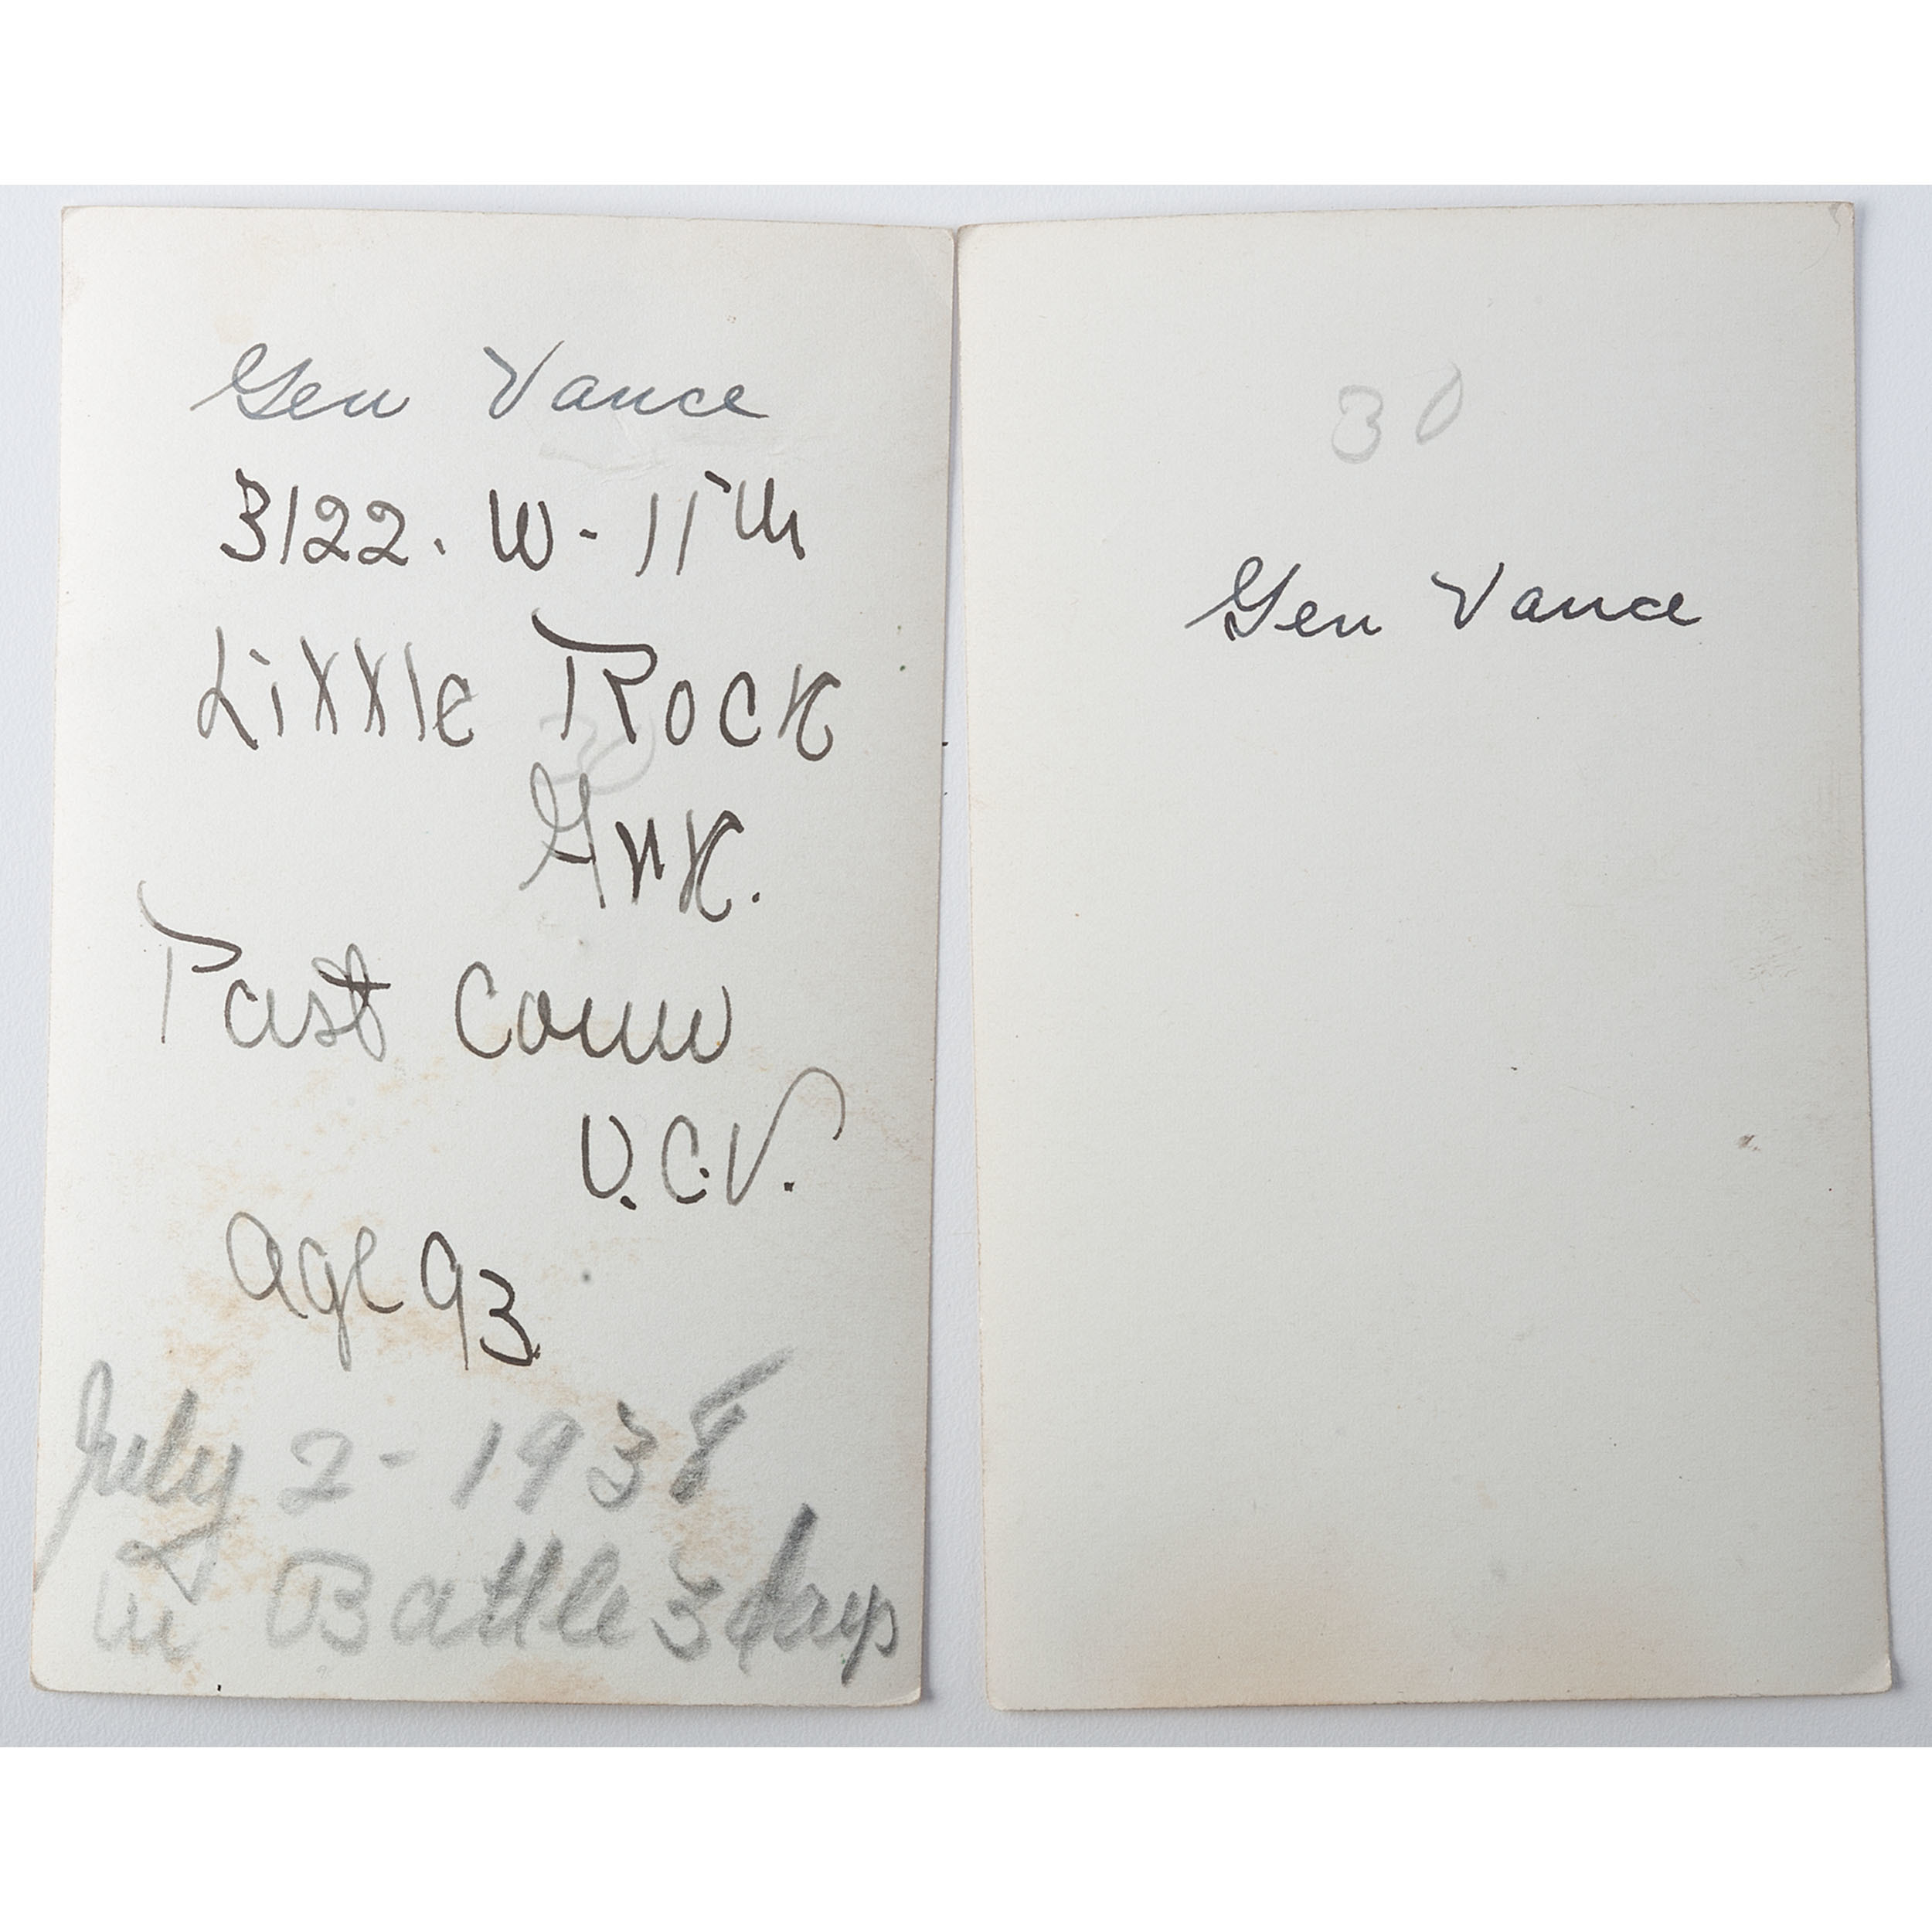 Gen Vance
3122. W - 11th
Little Rock
30
Ark.
Past Comm
U.C.V.
age 93
July 2 - 1938
in Battle 3 days
30
Gen Vance